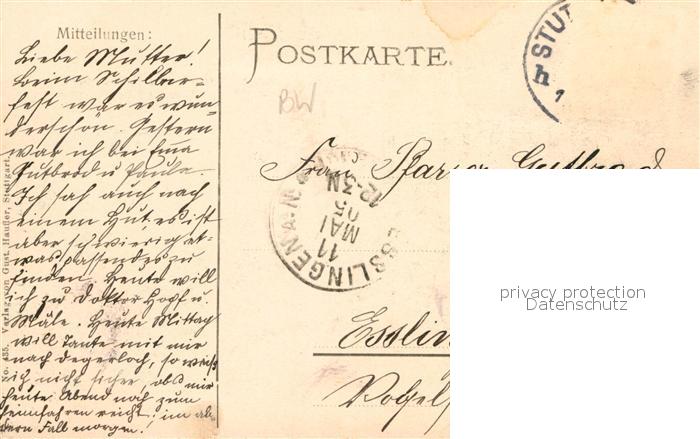 Mitteilungen:
Liebe Mutter!
Beim Schiller-
fest war es wun-
derschön. Gestern
war ich bei Ema
Gutbrod u. Paula.
Ich sah auch nach
einem Hut, es ist
aber schwierig et-
was passendes zu
finden. Heute will
ich zu Doktor Hopf u.
Mäle. Heute Mittag
will Tante mit mir
nach Degerloch, so weiß
ich nicht sicher, ob's mir
heute Abend noch zum
heimfahren reicht; im an-
dern Fall morgen!
No. 435. Verlag von Gust. Haufler, Stuttgart.
POSTKARTE.
BW
STUT
h
1
Frau Pfarrer Gutbrod
ESSLINGEN A. N.
11
MAI
05
12-3N
Esslin
Vogels
privacy protection
Datenschutz